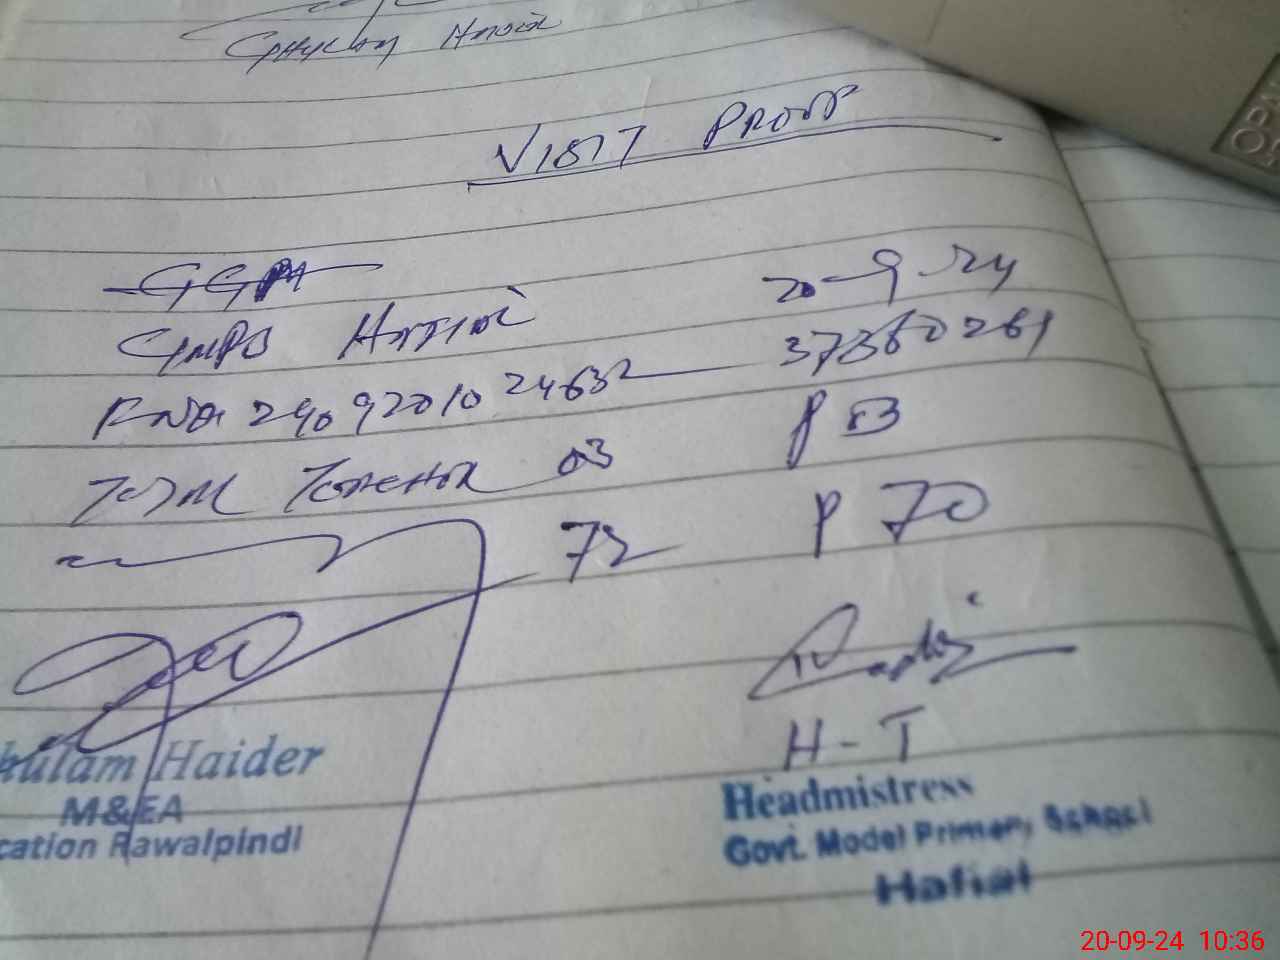 Ghulam Haider
VISIT PROOF
20-9-24
GMPS Hafial
37360261
RNO 2409201024632
Total Teacher 03
P 03
72
P 70
H-T
Haider
M&EA
Rawalpindi
Headmistress
Govt. Model Primary School
Hafial
OPA
20-09-24 10:36